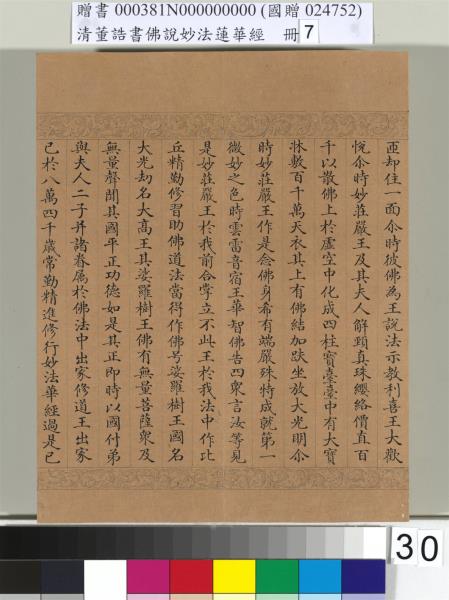 贈書 000381N000000000 (國贈 024752)
清董誥書佛說妙法蓮華經 冊 7
匝却住一面尒時彼佛為王說法示教利喜王大歡
悅尒時妙莊嚴王及其夫人解頸真珠纓絡價直百
千以散佛上於虛空中化成四柱寶臺臺中有大寶
牀敷百千萬天衣其上有佛結加趺坐放大光明尒
時妙莊嚴王作是念佛身希有端嚴殊特成就第一
微妙之色時雲雷音宿王華智佛告四衆言汝等見
是妙莊嚴王於我前合掌立不此王於我法中作比
丘精勤修習助佛道法當得作佛号娑羅樹王國名
大光刧名大高王其娑羅樹王佛有無量菩薩衆及
無量聲聞其國平正功德如是其王即時以國付弟
與夫人二子并諸眷屬於佛法中出家修道王出家
已於八萬四千歲常勤精進修行妙法華經過是已
30